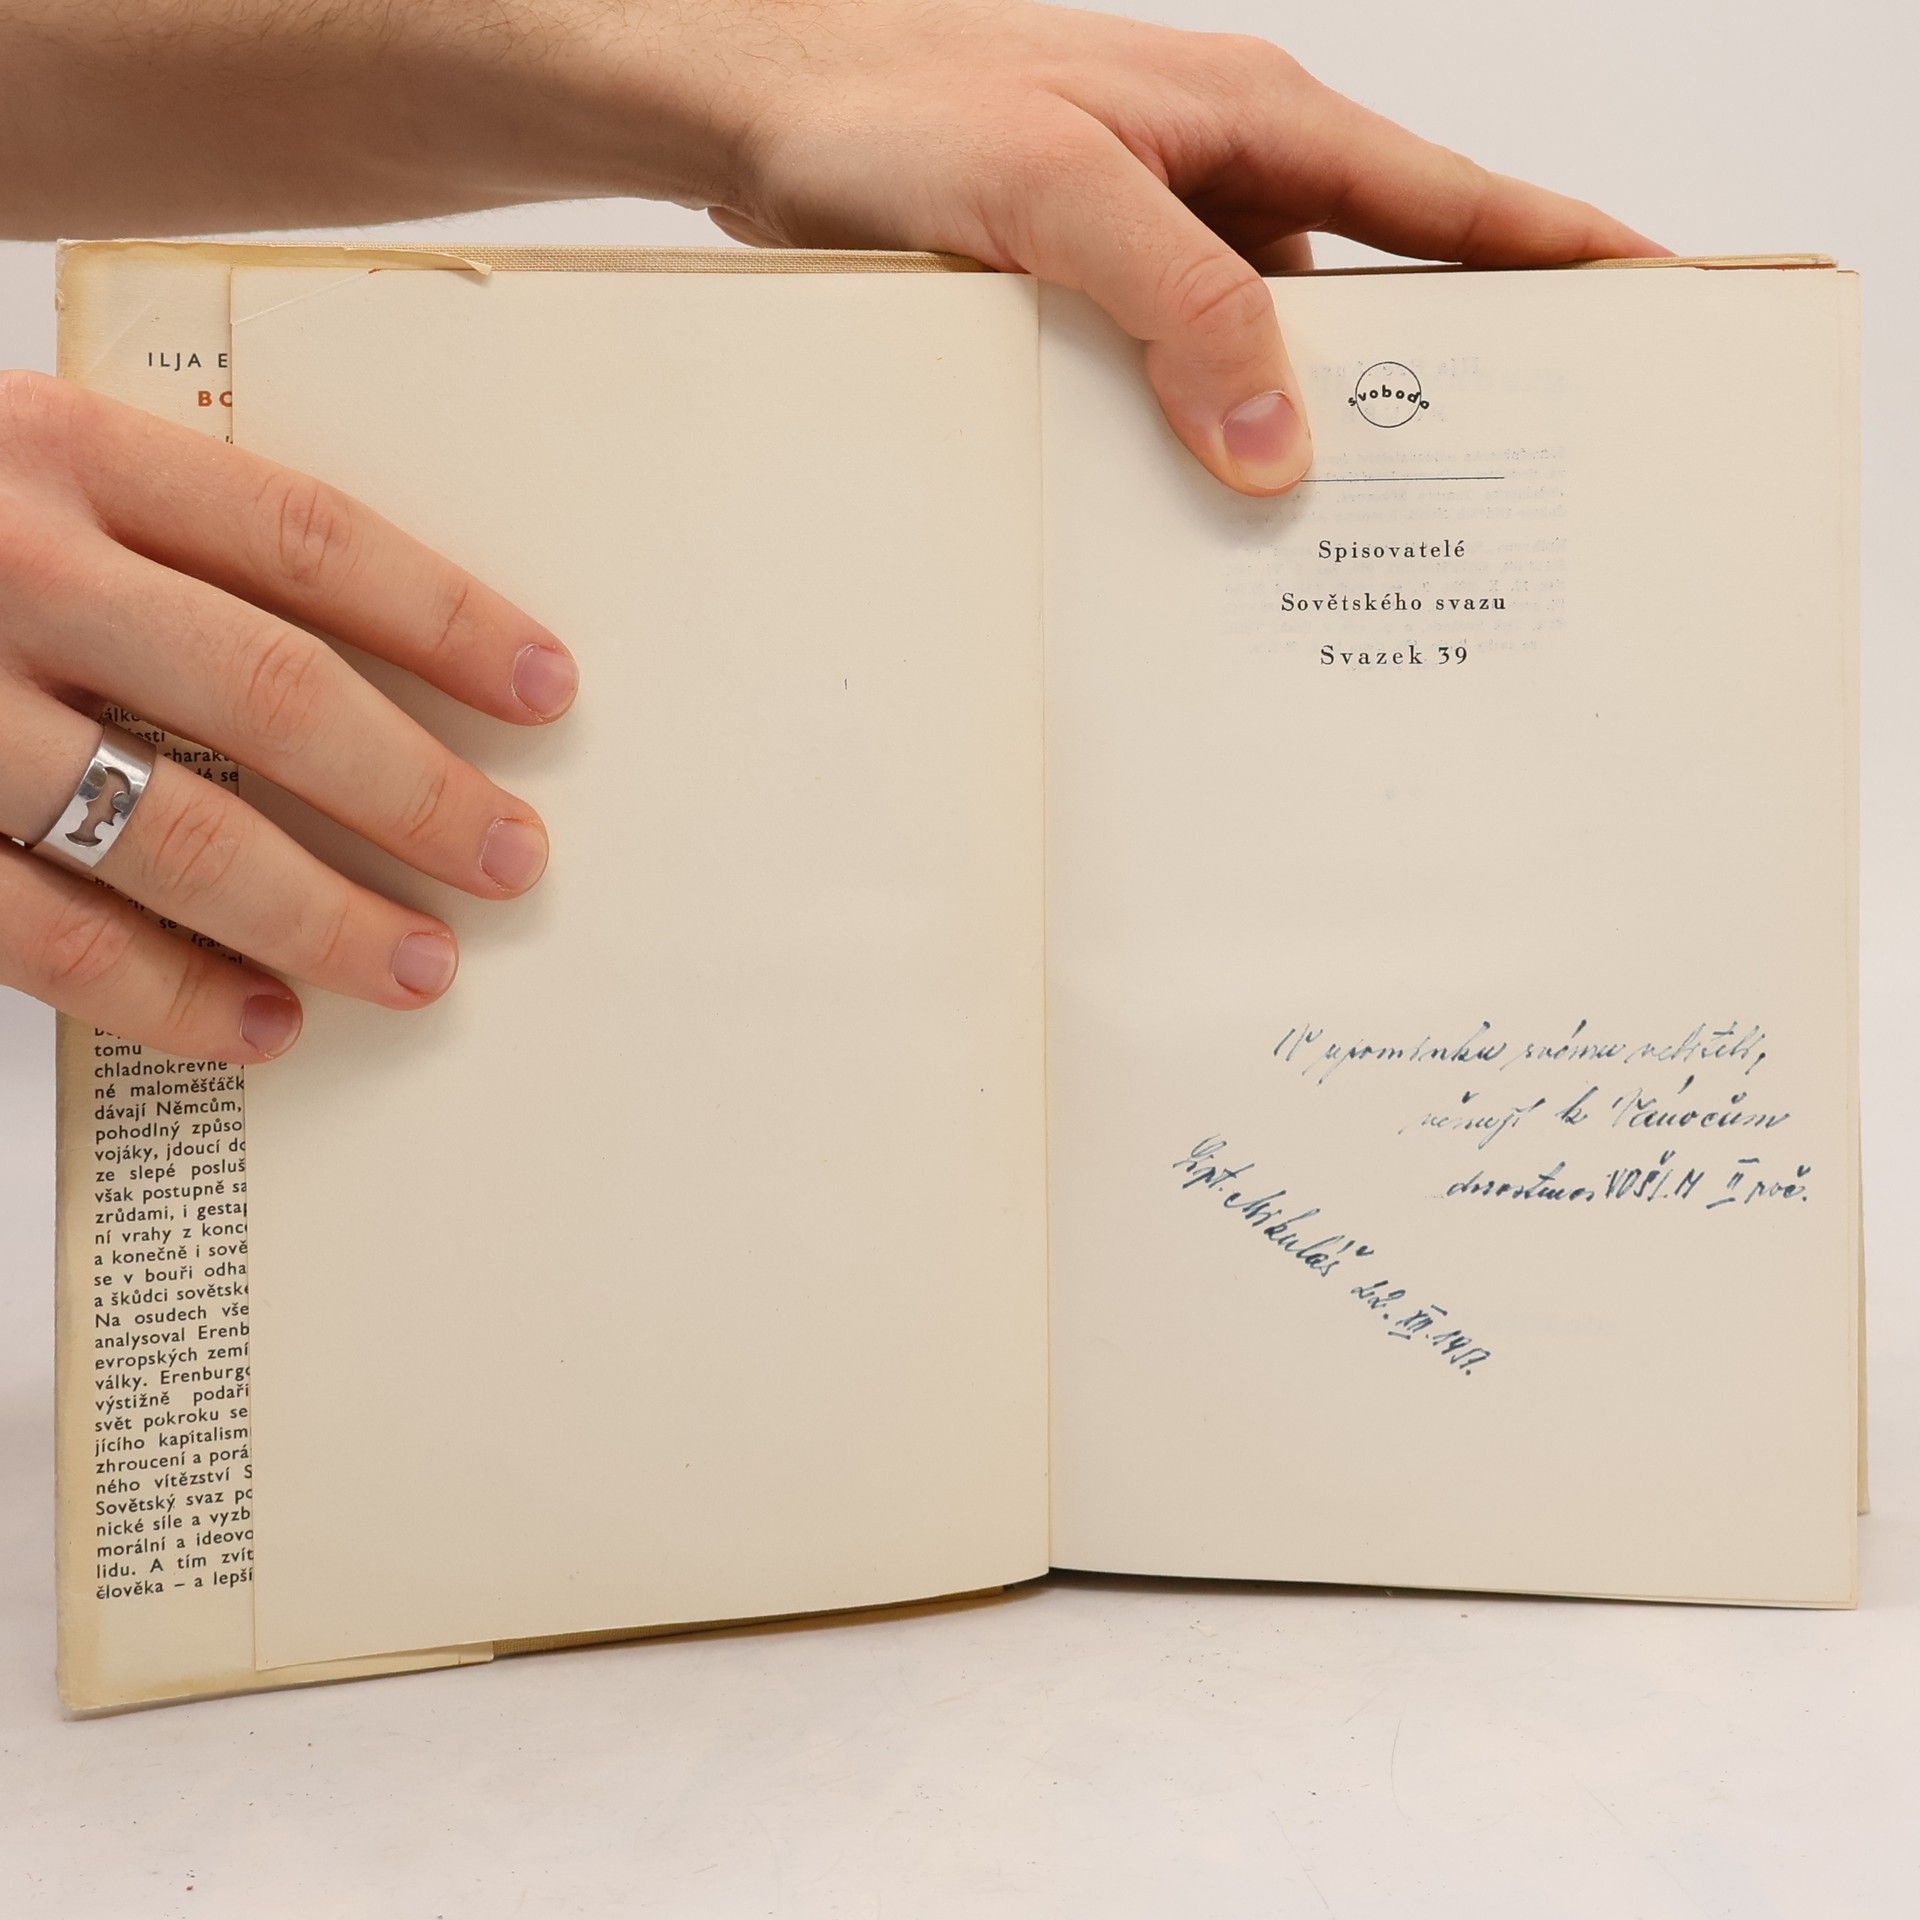 ILJA E
BO
válk
charakt
dé se
se
tomu
chladnokrevně
né maloměšťáčk
dávají Němcům,
pohodlný způso
vojáky, jdoucí do
ze slepé posluš
však postupně sa
zrůdami, i gestap
ní vrahy z konc
a konečně i sově
se v bouři odha
a škůdci sovětsk
Na osudech vše
analysoval Erenb
evropských zemí
války. Erenburgo
výstižně podaři
svět pokroku se
jícího kapitalism
zhroucení a porá
ného vítězství S
Sovětský svaz po
nické síle a vyzb
morální a ideovo
lidu. A tím zvít
člověka – a lepší
svoboda
Spisovatelé
Sovětského svazu
Svazek 39
V upomínku svému veliteli,
věnují k Vánocům
dorostenci VOŠ J. M II roč.
Lipt. Mikuláš 22. XII. 1951.